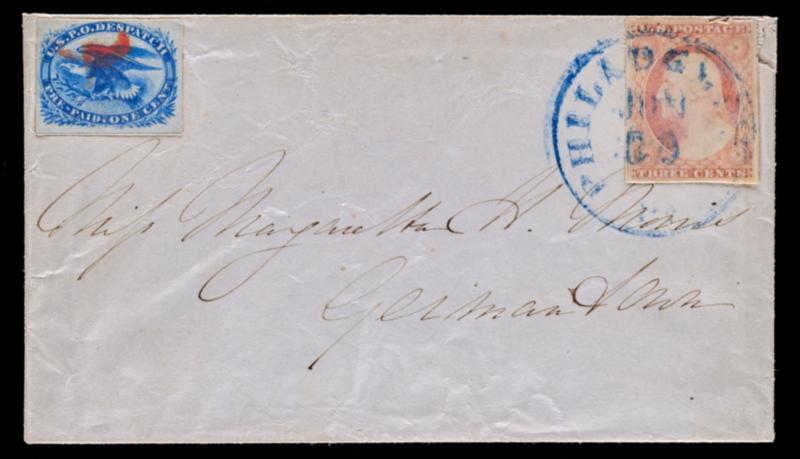 U.S.P.O. DESPATCH
PRE-PAID. ONE CENT.
U.S. POSTAGE
THREE CENTS
PHILADEL
Miss Margaretta H. Morris
Germantown